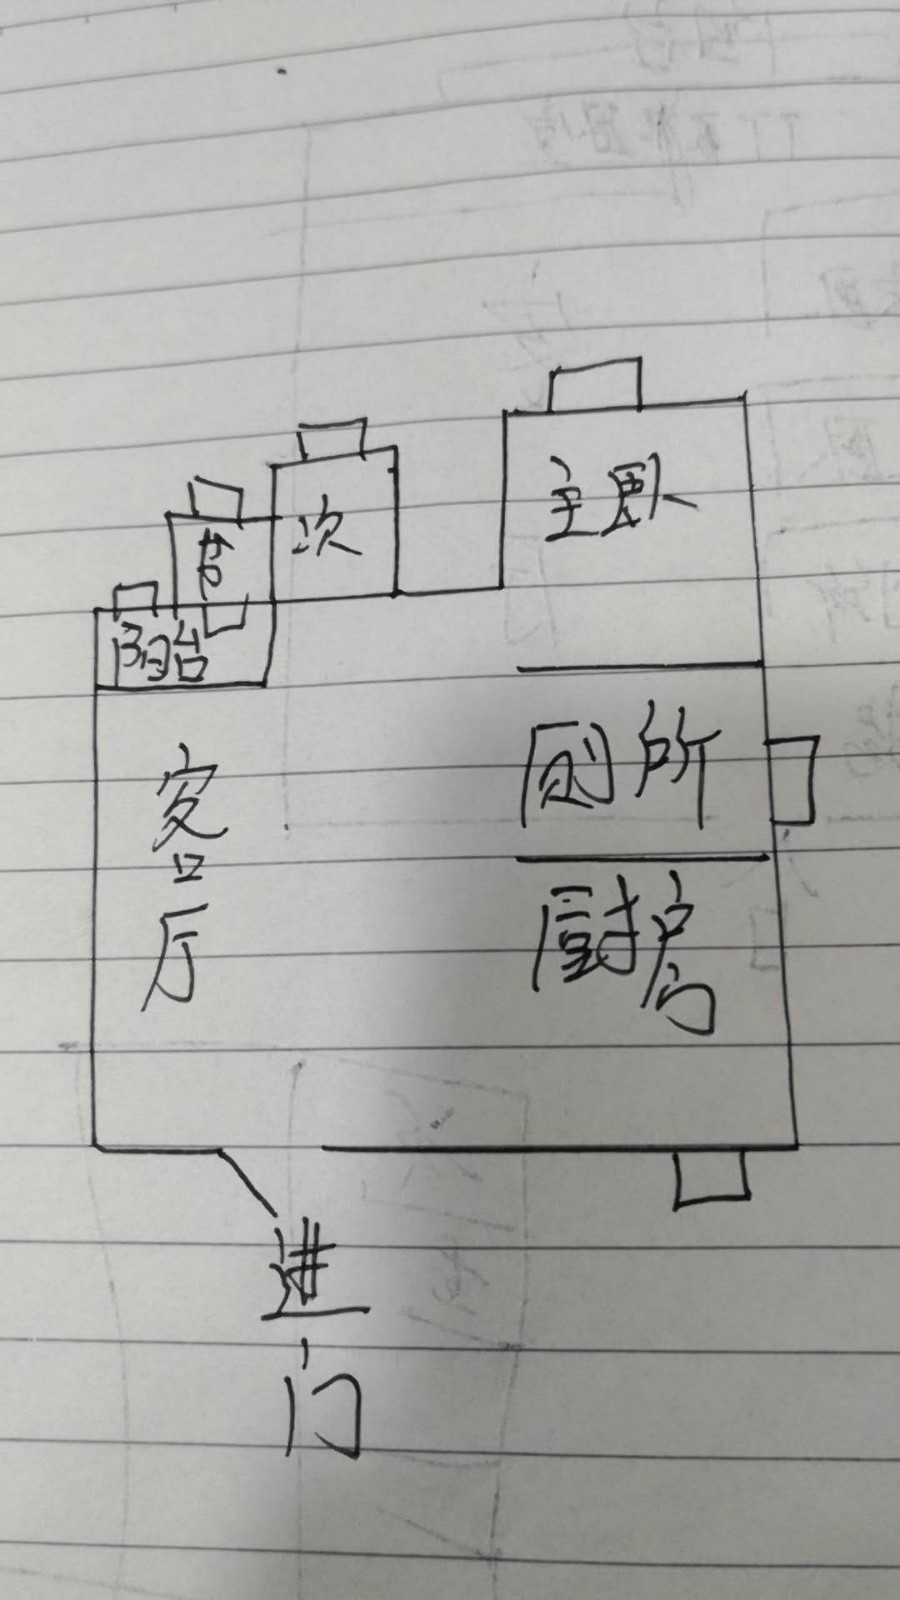 主卧
次
阳台
厕所
客厅
厨房
进门